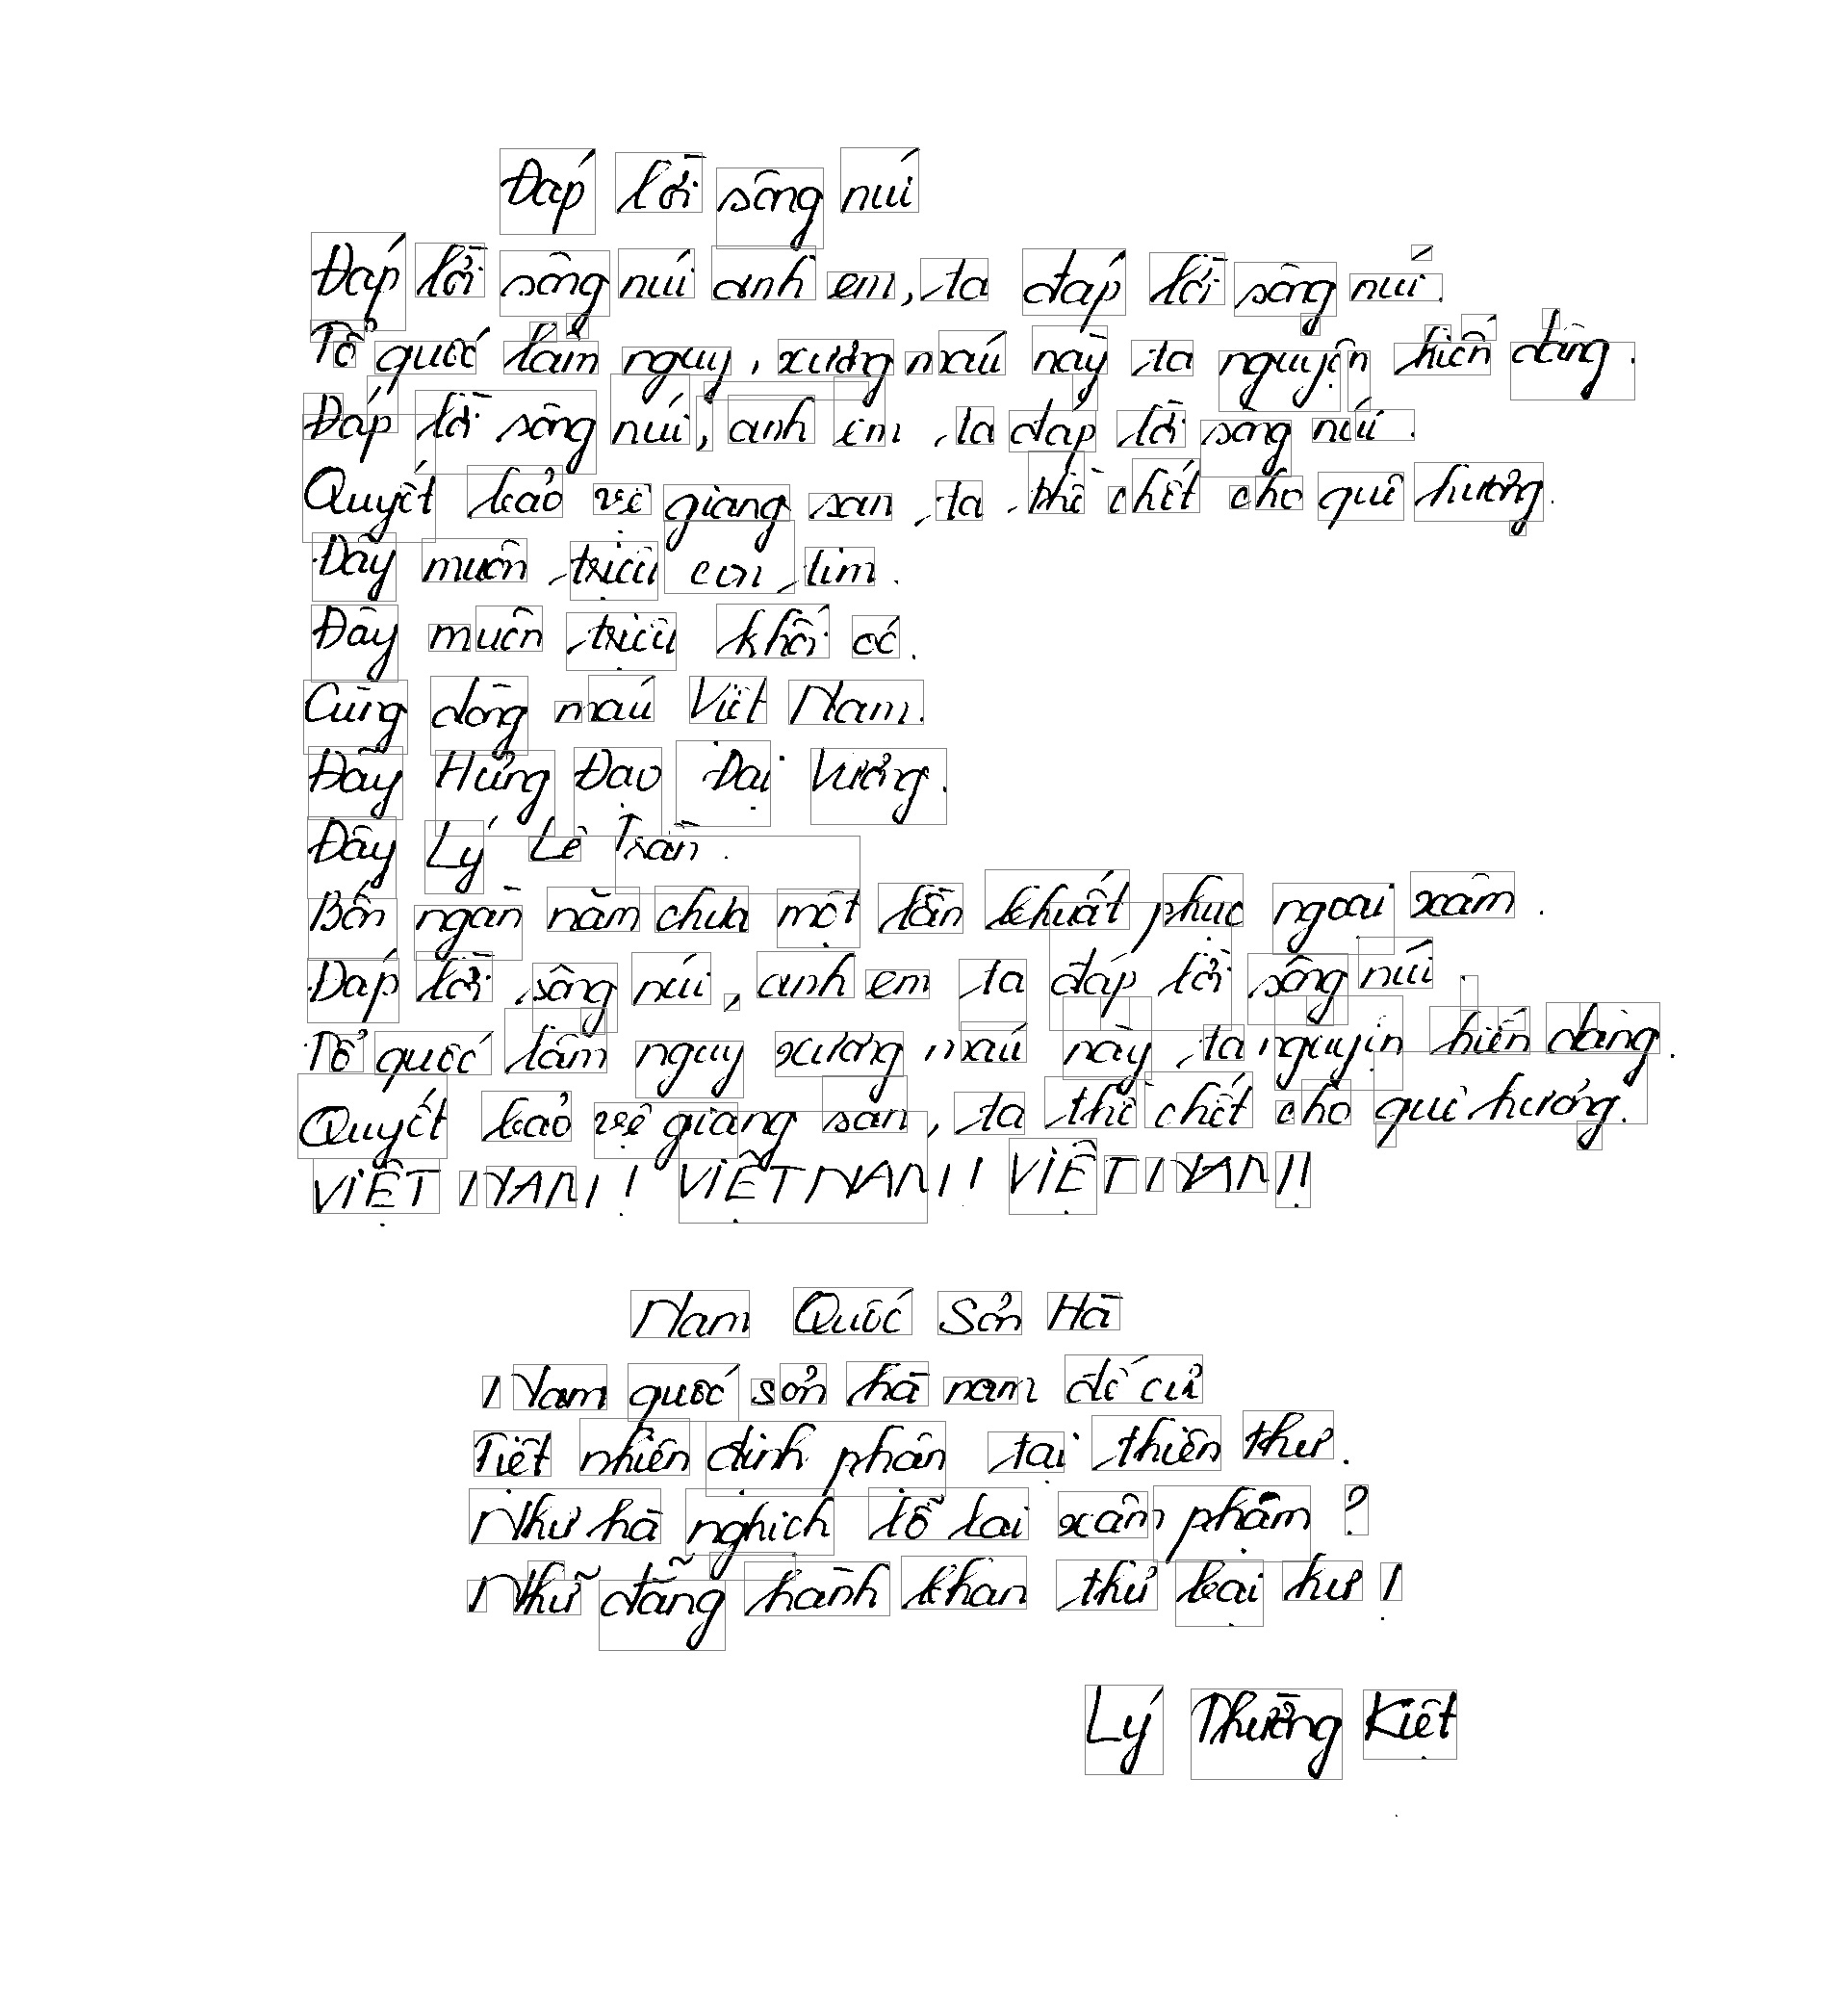 Đáp lời sông núi
Đáp lời sông núi anh em, ta đáp lời sông núi.
Tổ quốc lâm nguy, xương máu này ta nguyện hiến dâng.
Đáp lời sông núi, anh em ta đáp lời sông núi.
Quyết bảo vệ giang san ta thề chết cho quê hương.
Đây muôn triệu con tim.
Đây muôn triệu khối óc.
Cùng dòng máu Việt Nam.
Đây Hưng Đạo Đại Vương.
Đây Lý Lê Trần.
Bốn ngàn năm chưa một lần khuất phục ngoại xâm.
Đáp lời sông núi, anh em ta đáp lời sông núi.
Tổ quốc lâm nguy xương máu này ta nguyện hiến dâng.
Quyết bảo vệ giang san, ta thề chết cho quê hương.
VIỆT NAM! VIỆT NAM! VIỆT NAM!
Nam Quốc Sơn Hà
Nam quốc sơn hà nam đế cư
Tiệt nhiên định phận tại thiên thư.
Như hà nghịch lỗ lai xâm phạm?
Như đẳng hành khan thủ bại hư!
Lý Thường Kiệt